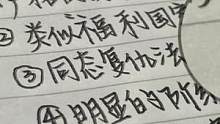 ②类似福利国
③同态复仇法
④明显的阶